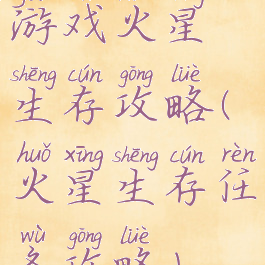 游戏火星
shēng cún gōng lüè
生存攻略(
huǒ xīng shēng cún rèn
火星生存任
wù gōng lüè
务攻略)